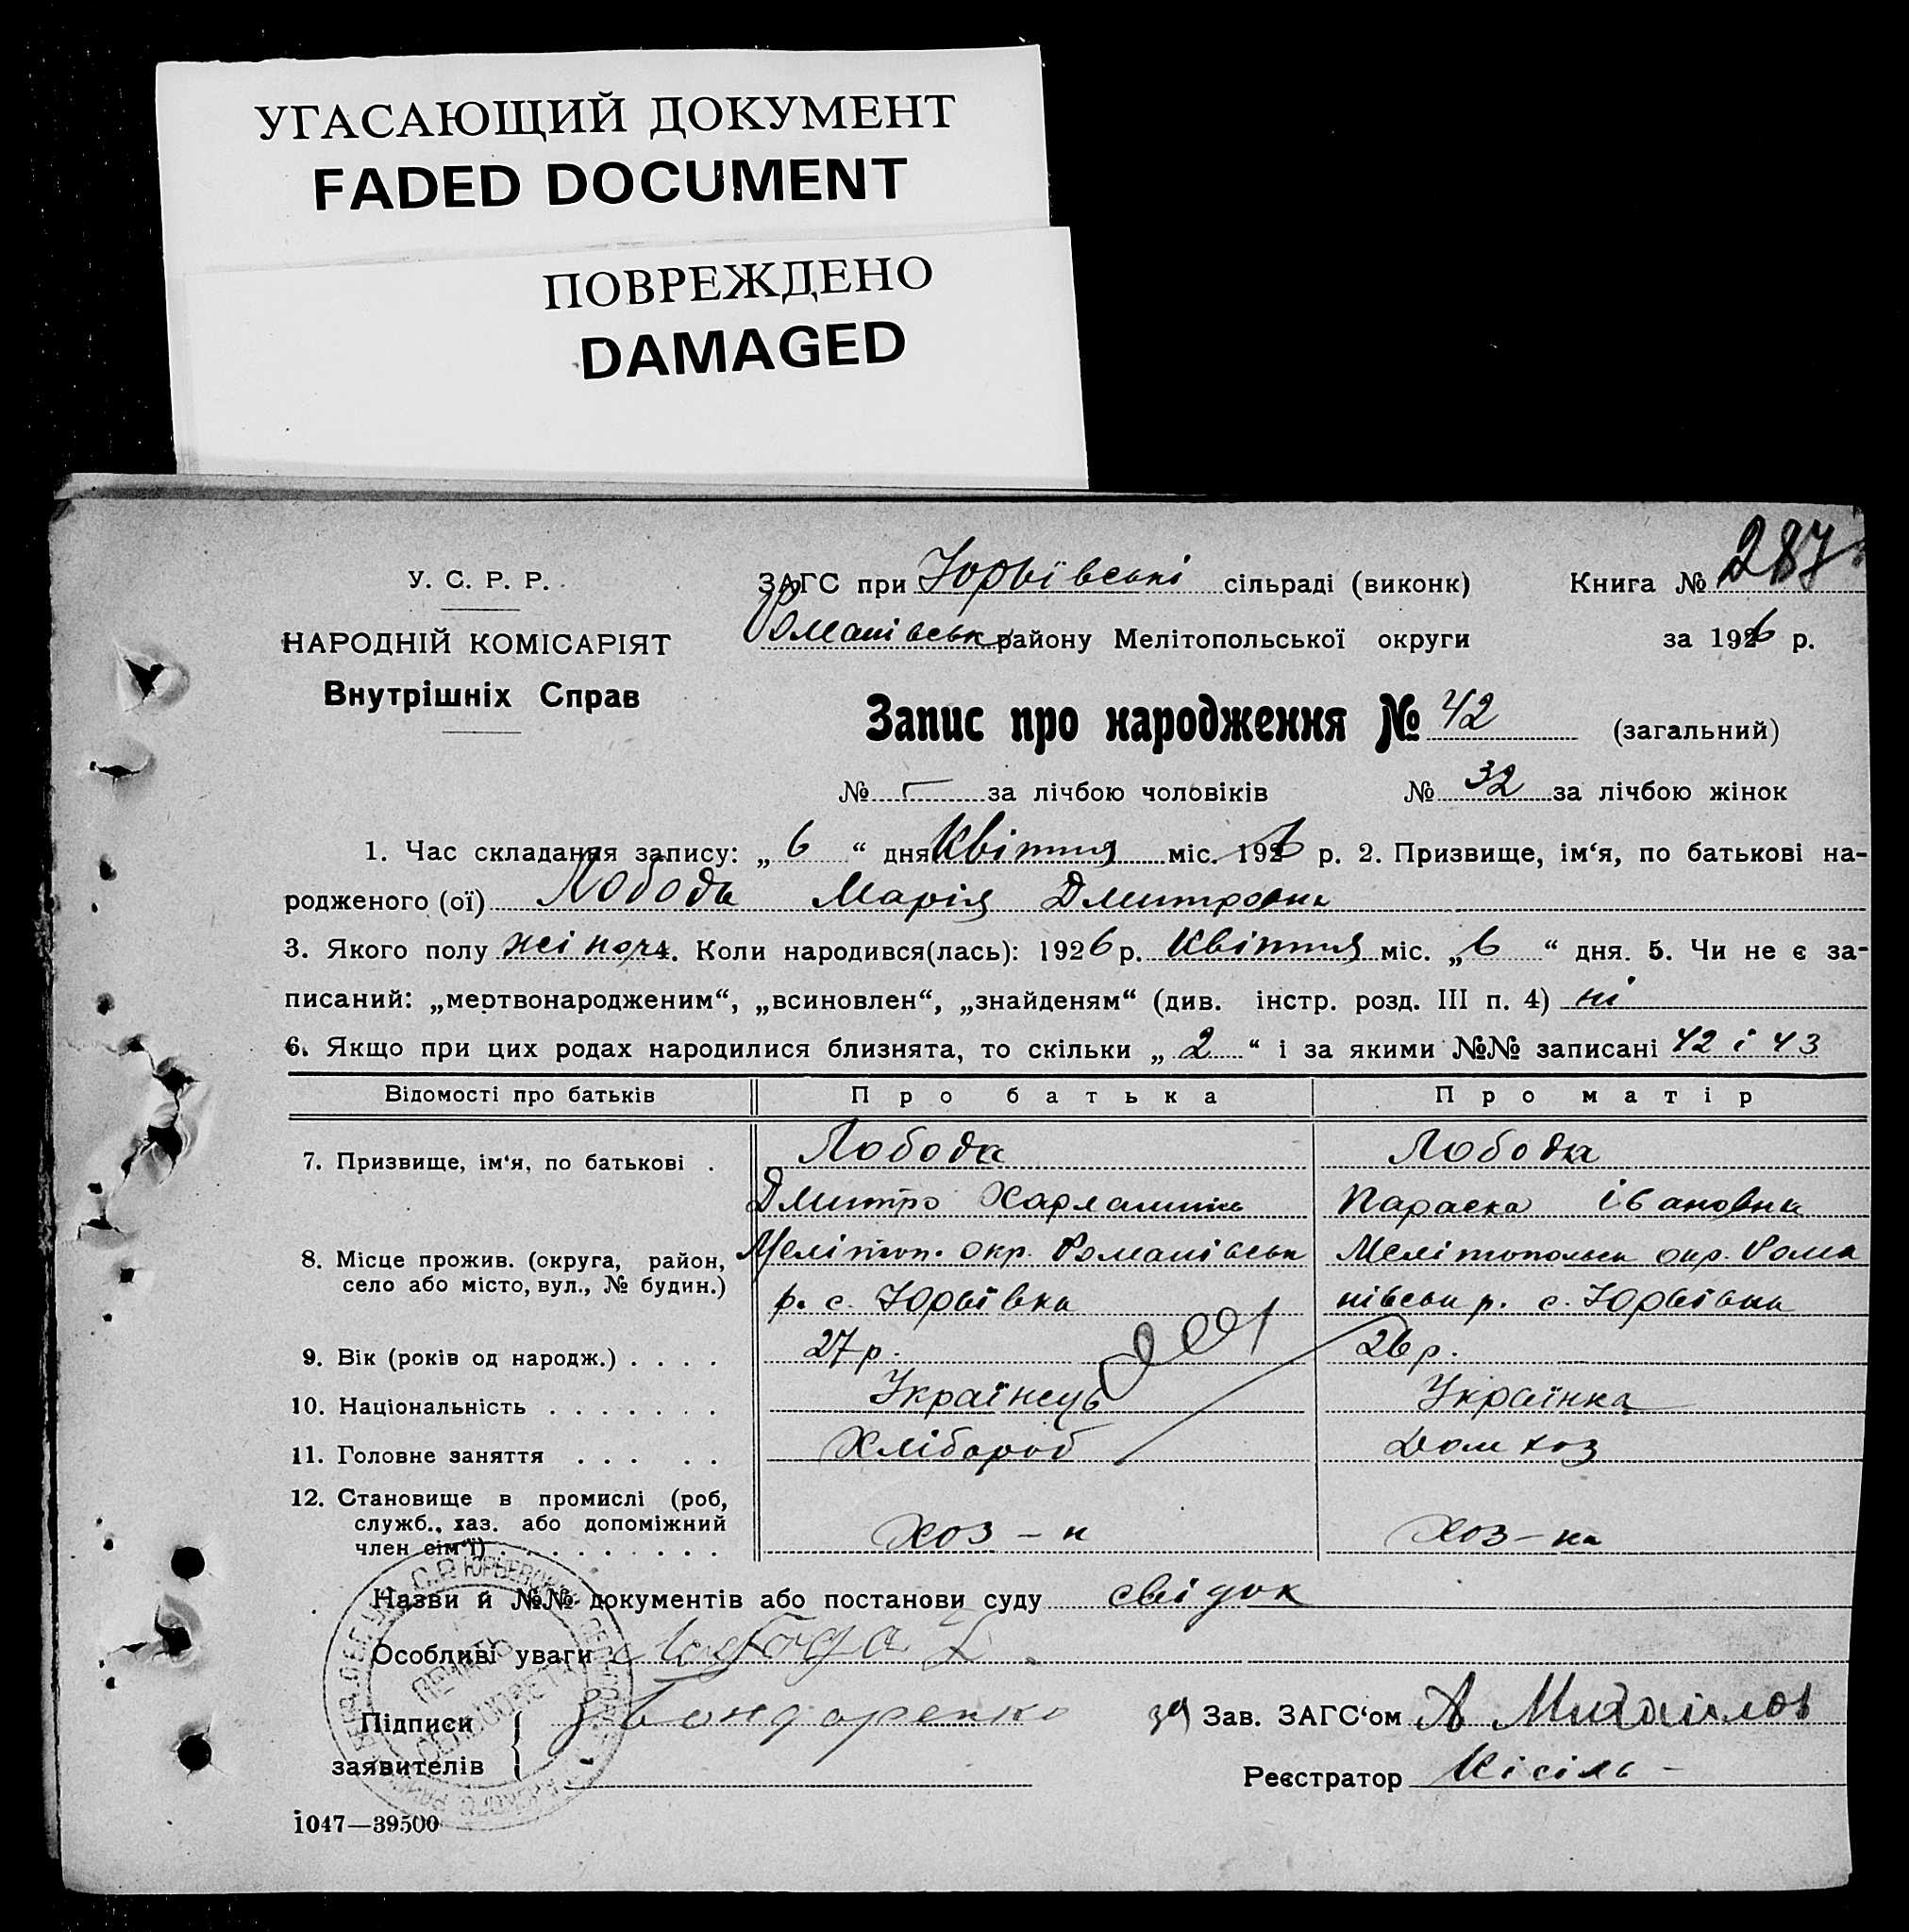 УГАСАЮЩИЙ ДОКУМЕНТ
FADED DOCUMENT
ПОВРЕЖДЕНО
DAMAGED
У. С. Р. Р.
НАРОДНІЙ КОМІСАРІЯТ
Внутрішніх Справ
ЗАГС при Юрьївські сільраді (виконк) Книга № 287
Романівськ району Мелітопольської округи за 1926 р.
Запис про народження № 42 (загальний)
№ за лічбою чоловіків № 32 за лічбою жінок
1. Час складання запису: „ 6 “ дня Квітня міс. 1926 р. 2. Призвище, ім‘я, по батькові на-
родженого (ої) Лобода Марія Дмитровна
3. Якого полу жіноч 4. Коли народився(лась): 1926 р. Квітня міс. „ 6 “ дня. 5. Чи не є за-
писаний: „мертвонародженим“, „всиновлен“, „знайденям“ (див. інстр. розд. III п. 4) ні
6. Якщо при цих родах народилися близнята, то скільки „ 2 “ і за якими №№ записані 42 і 43
Відомості про батьків Про батька Про матір
7. Призвище, ім‘я, по батькові . Лобода Лобода
Дмитро Параска Івановна
8. Місце прожив. (округа, район, Меліттоп. окр. Романівськ Мелітопольськ окр. Рома
село або місто, вул., № будин.) р. с. Юрьївка нівськ р. с. Юрьївка
9. Вік (років од народж.) . . . . 27 р. 26 р.
10. Національність . . . . . . . Українець Українка
11. Головне заняття . . . . . Хлібороб Дом хоз
12. Становище в промислі (роб,
служб., хаз. або допоміжний
член сім‘ї) . . . . . . . . . хоз-н хоз-ка
Назви й №№ документів або постанови суду свідок
Особливі уваги Лобода
Підписи Бондаренко за Зав. ЗАГС‘ом А Михайлов
заявителів Реєстратор Кісіль
1047—39500
ПЕЧАТЬ
СЕЛЬСОВЕТА